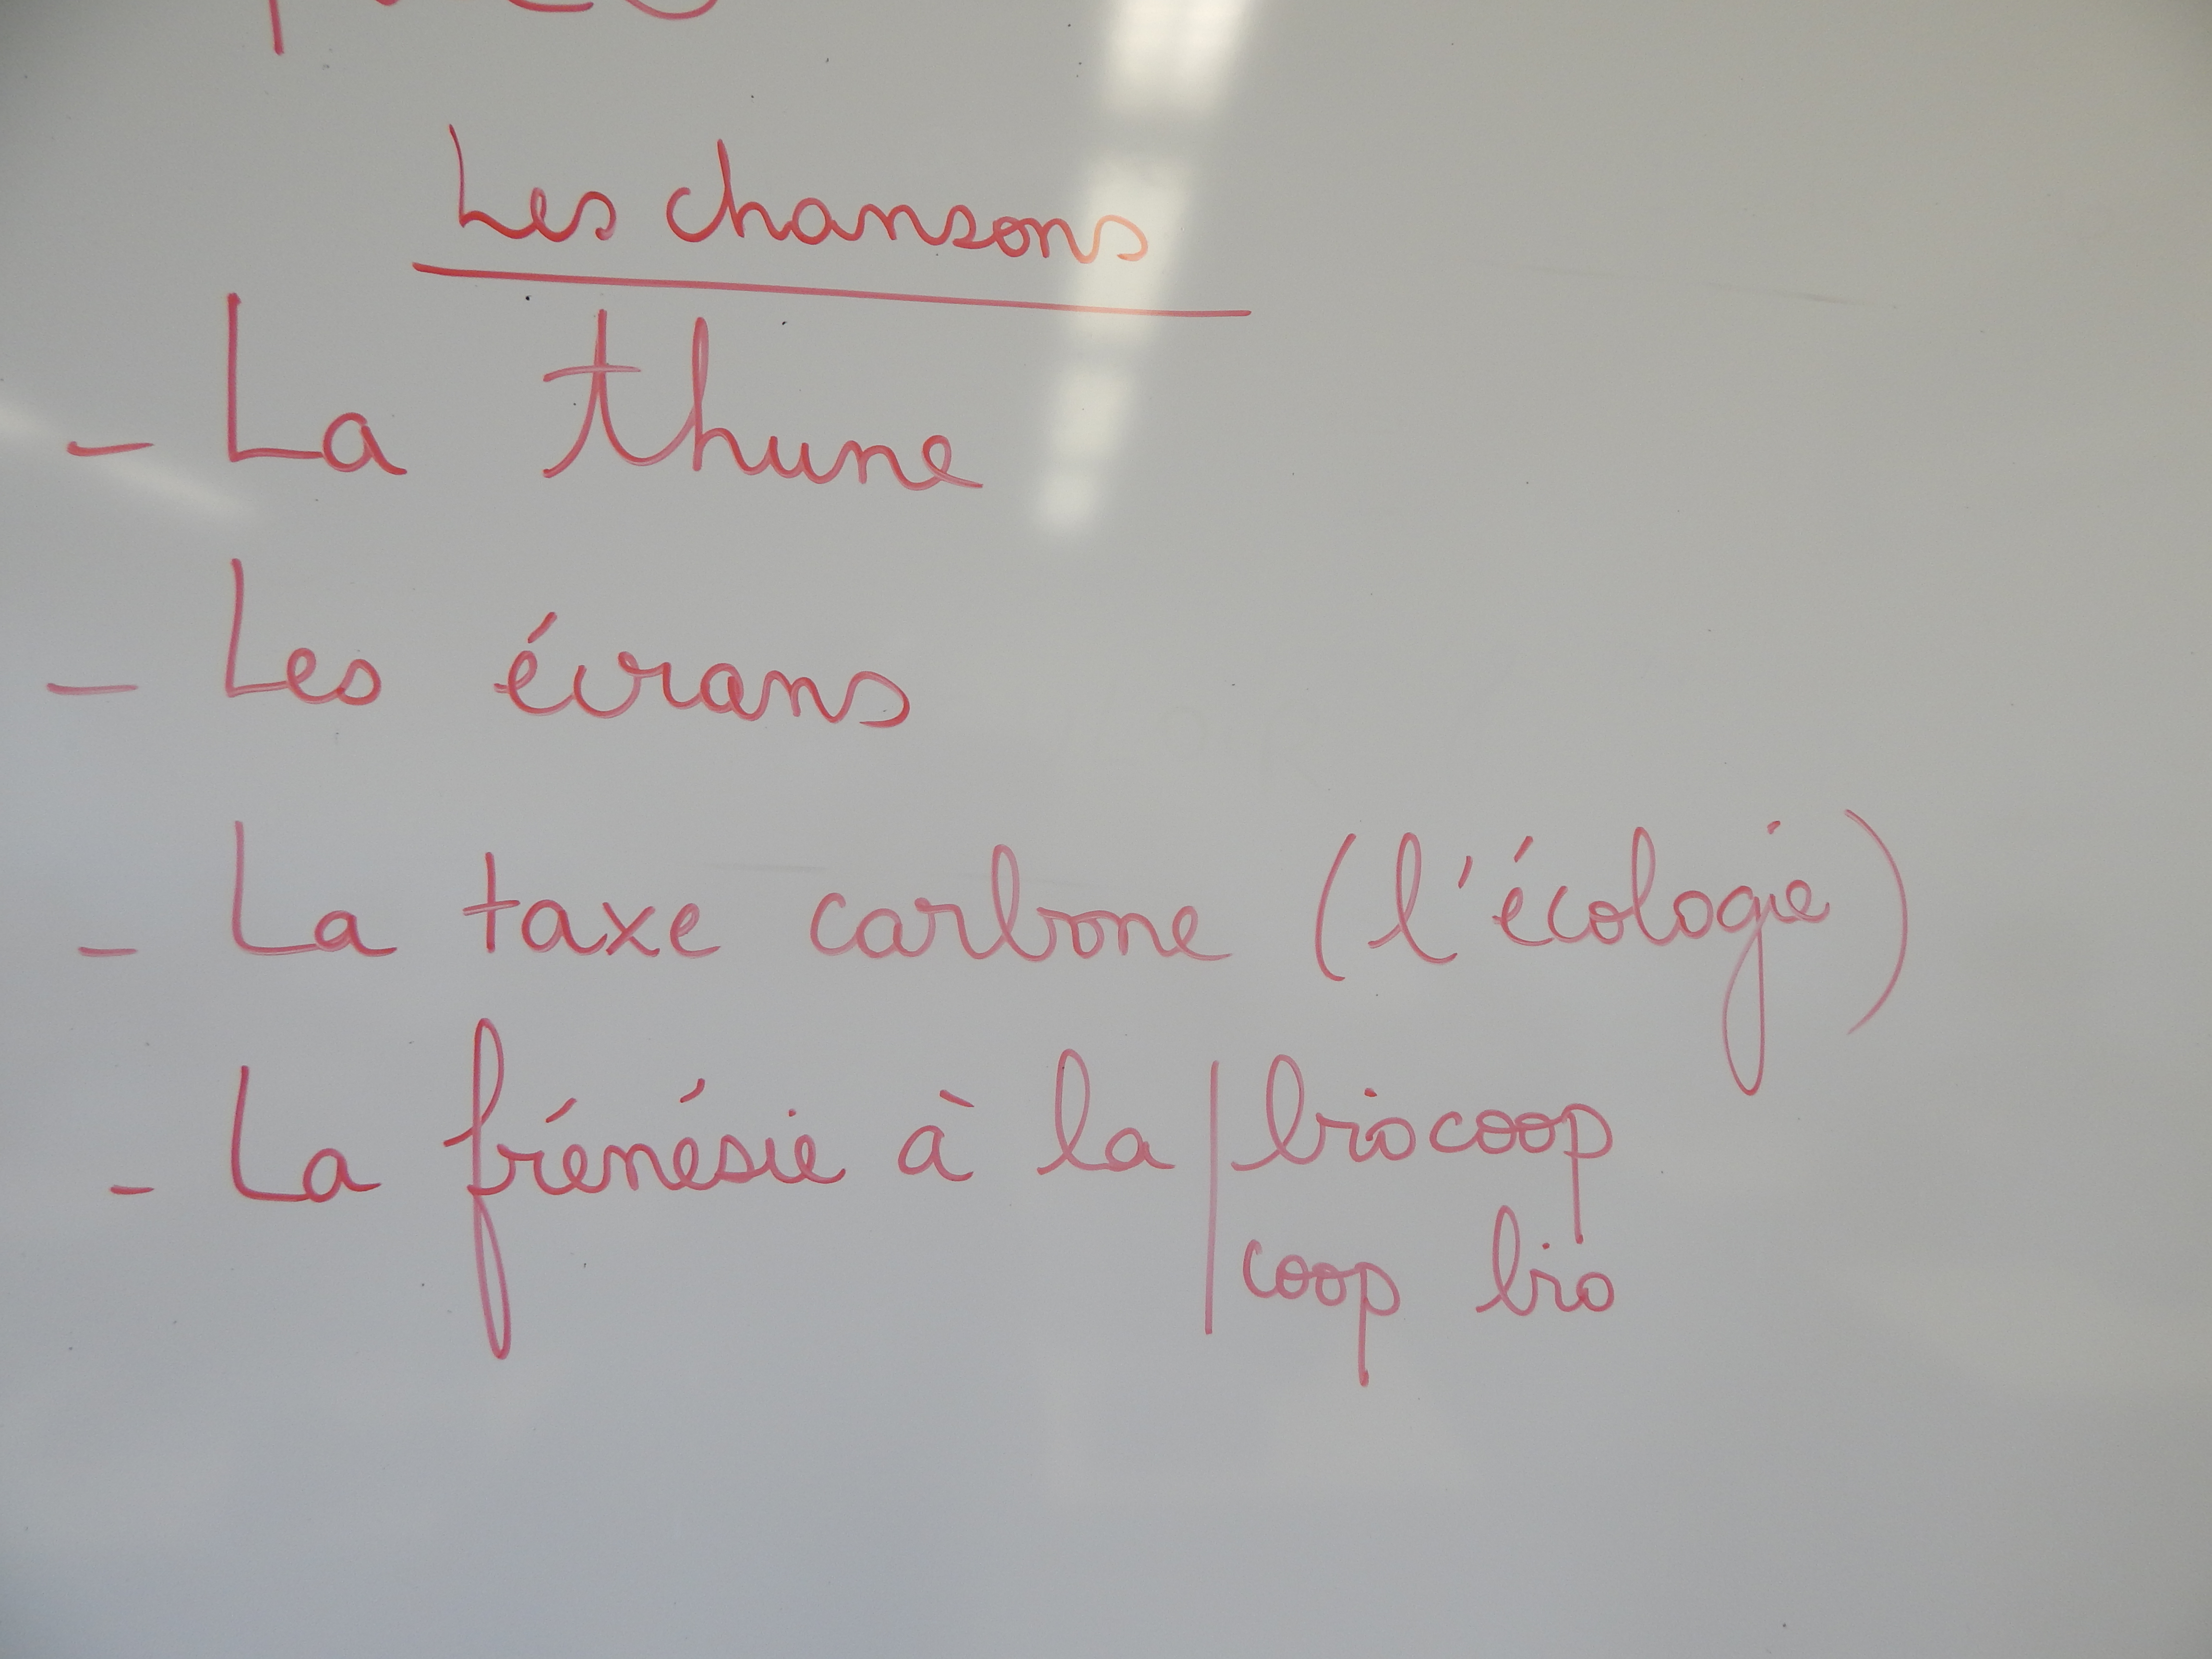 Les chansons
- La thune
- Les écrans
- La taxe carbone (l'écologie)
- La frénésie à la | biocoop
coop bio